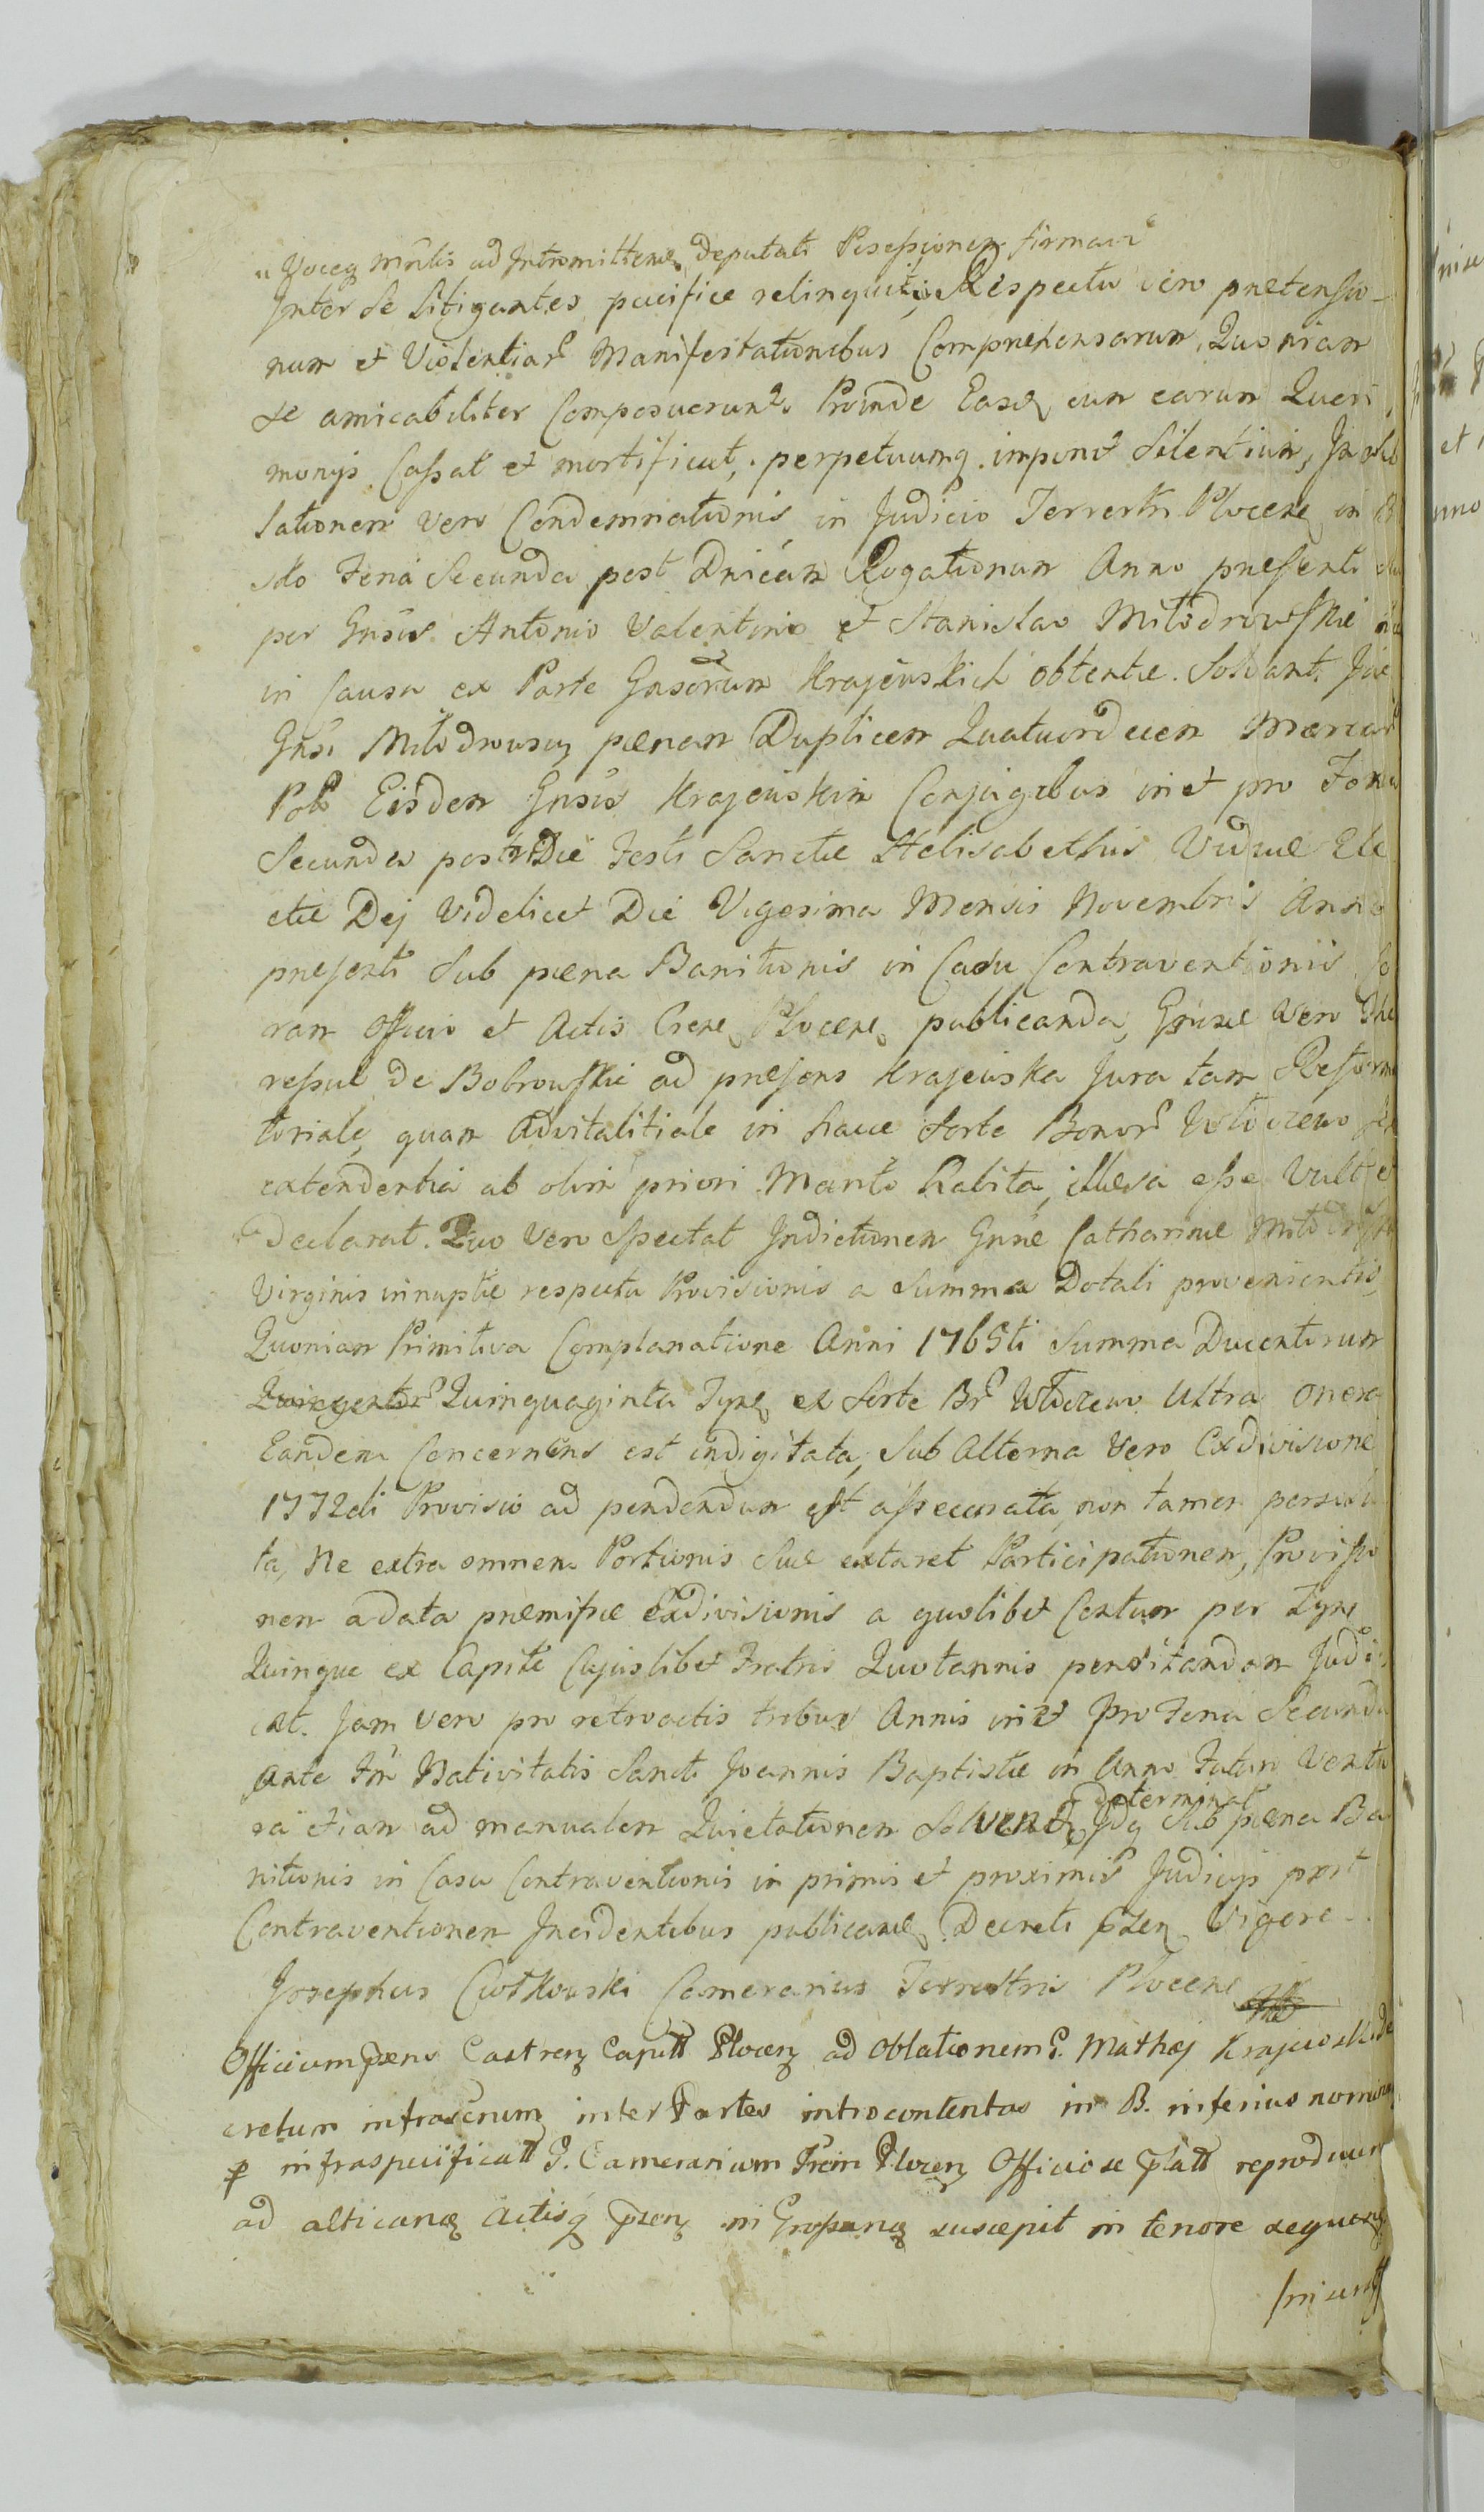 Voceq mntis ad Intromittene Deputati Posessionem firmavit
Inter Se Litigantes pacifice relinquit, Respectu vero praetensio-
num et Violentiar Manifestationibus Comprehensarum, Quoniam
se amicabiliter Composuerunt. Proinde Easdem cum earum Queri
monijs Cassat et mortificat, perpetuumq imponit Silentium, In
lationem vero Condemnationis in Judicio Terrestri Plocen in
sdo Feria Secunda post Dnicam Rogationum Anno praesenti
per Gnsos Antonio Valentino et Stanislao Miłodrowskie
in Causa ex Parte Gnsorum Krajewskich obtentae. Solvant
Gnsi Miłodrowscy paenam Duplicem Quatuordecem Marcar
Pol Eisdem Gnsis Krajewskim Conjugibus in et pro Feria
Secunda post Die Festi Sanctae Helisabethis Viduae Ele
ctae Dej Videlicet Die Vigesima Mensis Novembris Anno
praesenti Sub paena Banitionis in Casu Contraventionis Co
ram Officio et Actis Cren Plocen publicanda, Gnsae vero The
ressae De Bobrowskie ad praesens Krajewska Jura tam Reforma
toriale, quam Advitalitiale in hacce Sorte Bonor Włoczewo
extendentia ab olim priori Marito habita, illaesa esse Vult et
Declarat. Quo vero spectat Indictionem Gnne Catharinae
Virginis innuptae respectu Provisionis a Summa Dotali provenientis,
Quoniam Primitiva Complanatione Anni 1765ti Summa Ducentorum
Quingentor Quinquaginta Tyn ex Sorte Br Włoczewo Ultra onera
Eandem Concernens est indigitata, Sub Alterna vero Exdivisione
1772di Provisio ad pendendum est assecurata non tamen persolu
ta, Ne extra omnem Portionis Suae extaret Participationem, Provisio
nem a data praemissae Exdivisionis a quolibet Centum per Tyn
Quinque ex Capite Cujuslibet Fratris Quotannis pensitandam Judi
cat. Jam vero pro retroactis tribus Annis in et pro Feria Secunda
Ante Fm Nativitatis Sancti Joannis Baptistae in Anno Futuri Ventu
determinat
ra etiam ad manualem Quietationem Solvend, Idq Sub paena Ba
nitionis in Casu Contraventionis in primis et proximis Judicijs post
Contraventionem Incidentibus publicand Decreti psen Vigore
Josephus Ciotkowski Camerarius Terrestris Plocen
Officium praens Castren Capitt Plocen ad Oblationem G. Mathaej Krajewski de
cretum infrascrum inter Partes introcontentas in B. inferius nomina
p infraspecificatt G. Camerarium Trem Plocen Officiose platt reproducun
ad alticanae Actisq psen ingrossand suscepit in tenore sequen